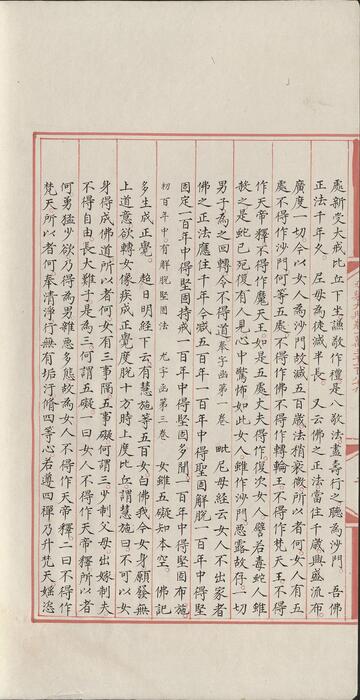 處新受大戒比丘下坐謙敬作禮是八敬法盡壽行之聽為沙門吾佛
正法千年久。 尼母為徒減半長。 又云佛之正法當住千歲興盛流布
廣度一切今以女人為沙門故減五百歲法稍衰微所以者何女人有五
處不得作沙門何等五處不得作佛不得作轉輪王不得作梵天王不得
作天帝釋不得作魔天王如是五處丈夫得作。復次女人譬若毒蛇人雖
殺之是蛇已死復有人見心中驚怖如此女人雖作沙門惡露故存一切
男子為之回轉令不得道。羣字函第一卷 毗尼母經云女人不出家者
佛之正法應住千年今減五百年一百年中得堅固解脫一百年中得堅
固定一百年中得堅固持戒一百年中得堅固多聞一百年中得堅固布施。
初百年中有解脫堅固法 尤字函第三卷 女雖五礙知本空。 佛記
多生成正覺。 超日明經下云有慧施等五百女白佛我今女身願發無
上道意欲轉女像疾成正覺度脫十方時上度比丘謂慧施曰不可以女
身得成佛道所以者何女有三事隔五事礙何謂三少制父母出嫁制夫
不得自由長大難子是為三何謂五礙一曰女人不得作天帝釋所以者
何勇猛少欲乃得為男雜惡多態故為女人不得作天帝釋。二曰不得作
梵天所以者何奉清淨行無有垢汙脩四等心若遵四禪乃升梵天媱恣